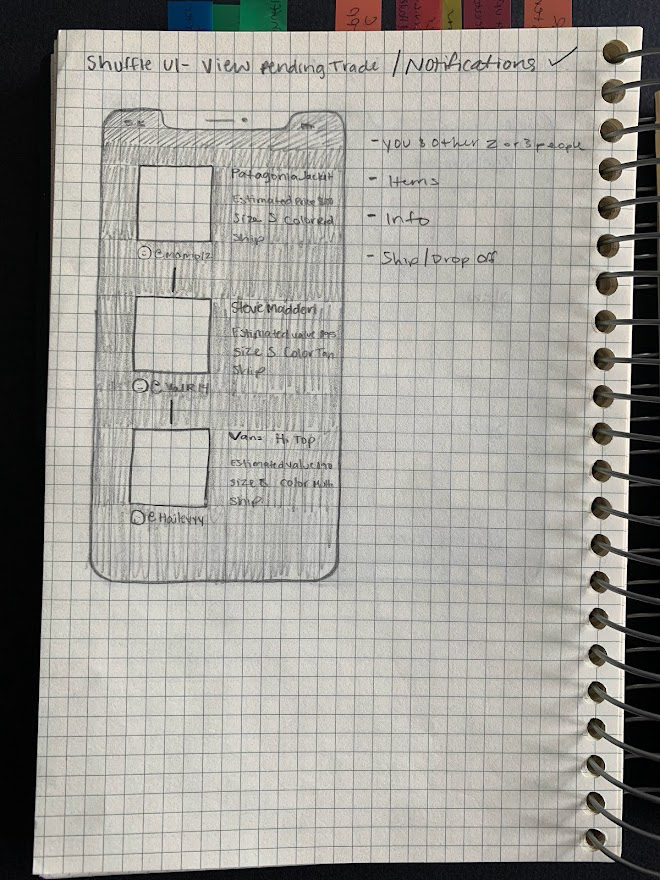 Shuffle UI - View Pending Trade / Notifications ✓
- You & other 2 or 3 people
- Items
- Info
- Ship/Drop Off
Patagonia Jacket
Estimated Price
Size S Colored
Ship
Steve Madden
Estimated value
Size S Color Tan
Ship
Vans Hi Top
Estimated value
Size 8 color Multi
Ship
@Haileyyy